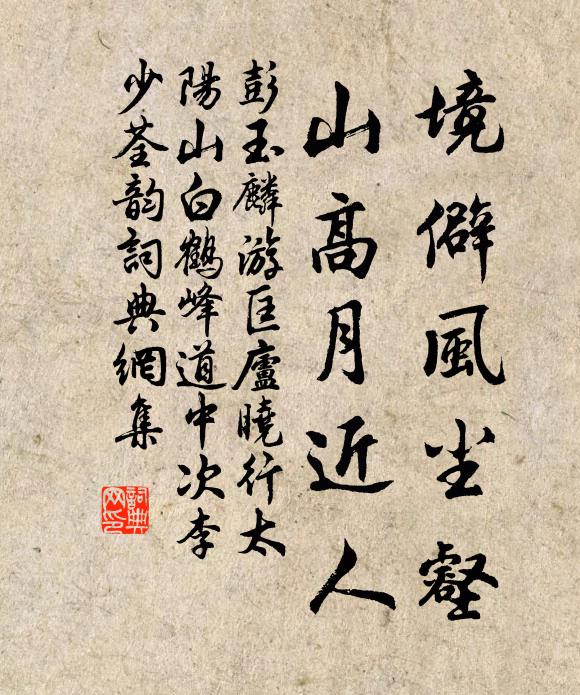 境僻風生壑
山高月近人
彭玉麟游匡廬曉行太
陽山白鶴峰道中次李
少荃韵詞典網集
詞典
网印